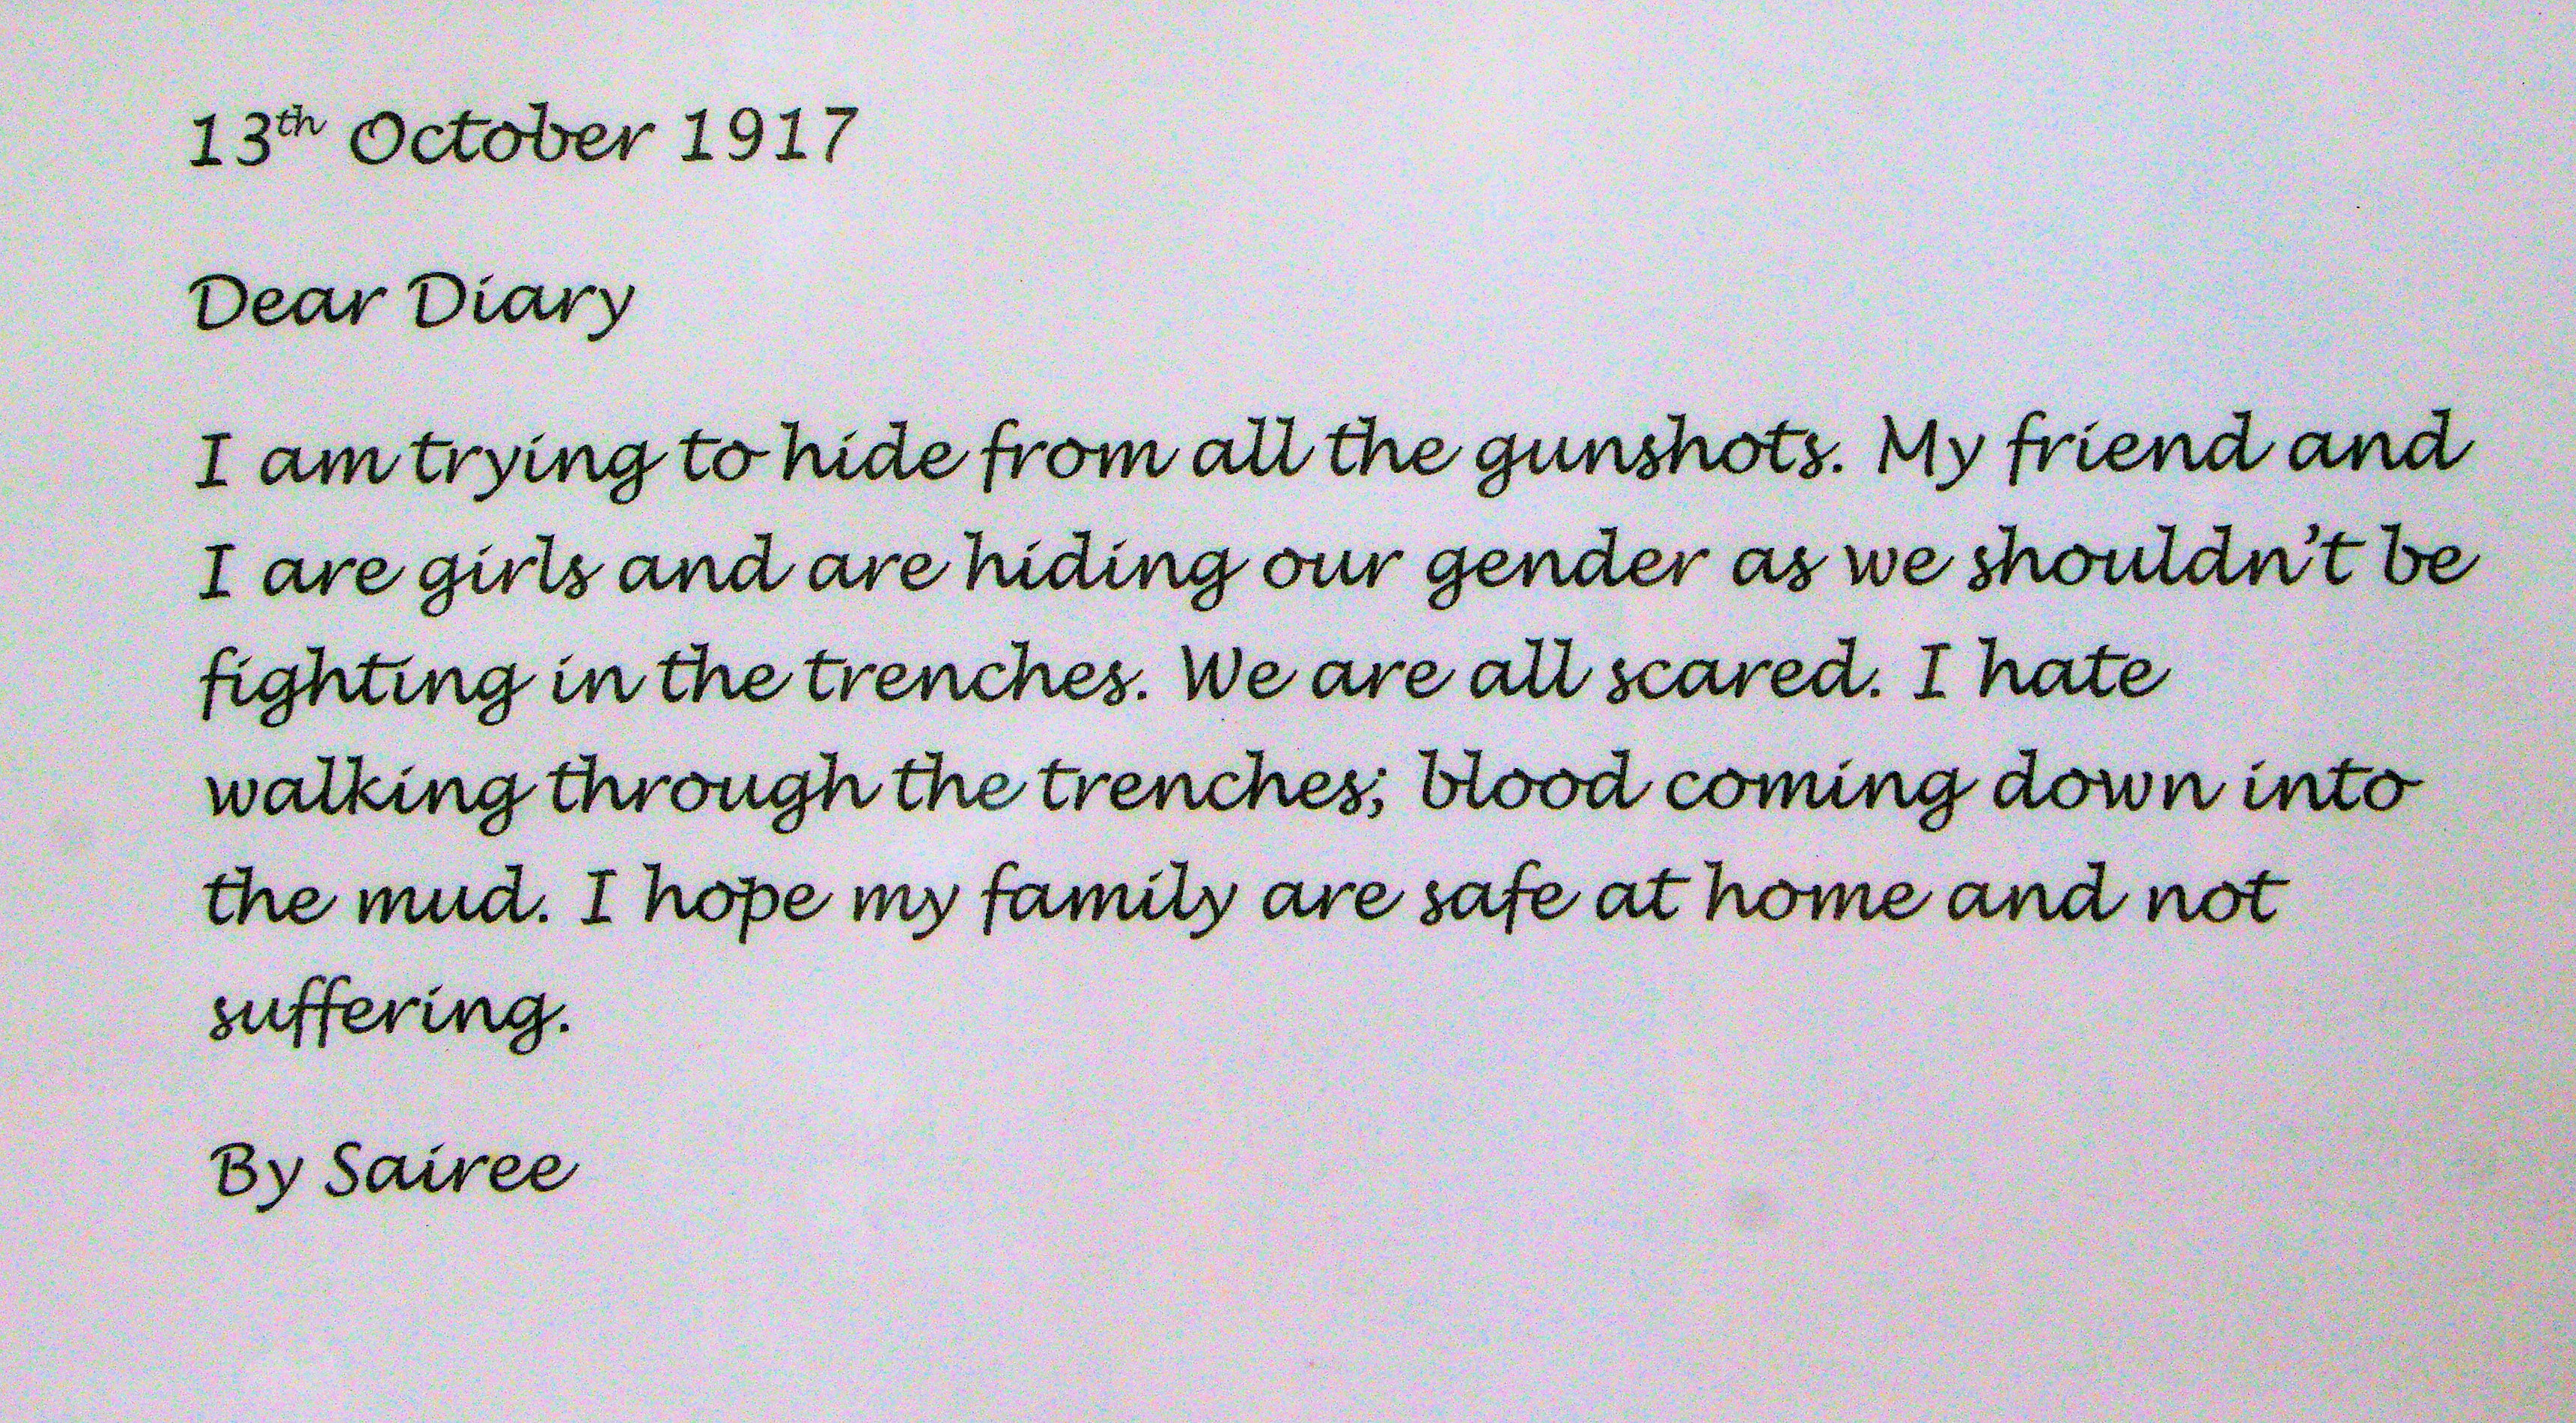 13th October 1917
Dear Diary
I am trying to hide from all the gunshots. My friend and
I are girls and are hiding our gender as we shouldn't be
fighting in the trenches. We are all scared. I hate
walking through the trenches; blood coming down into
the mud. I hope my family are safe at home and not
suffering.
By Sairee